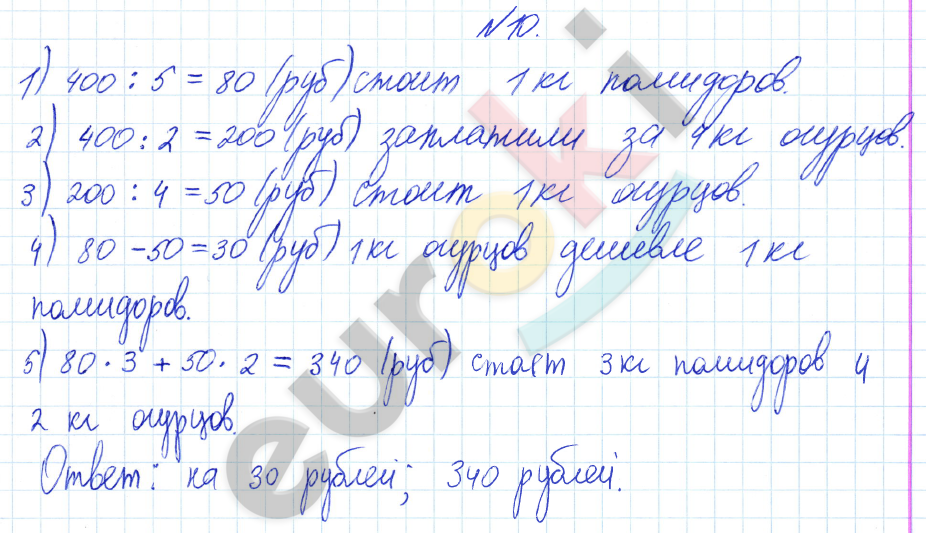 №10.
1) 400 : 5 = 80 (руб) стоит 1 кг помидоров.
2) 400 : 2 = 200 (руб) заплатили за 4 кг огурцов.
3) 200 : 4 = 50 (руб) стоит 1 кг огурцов.
4) 80 - 50 = 30 (руб) 1 кг огурцов дешевле 1 кг
помидоров.
5) 80 · 3 + 50 · 2 = 340 (руб) стоят 3 кг помидоров и
2 кг огурцов.
Ответ: на 30 рублей; 340 рублей.
euroki